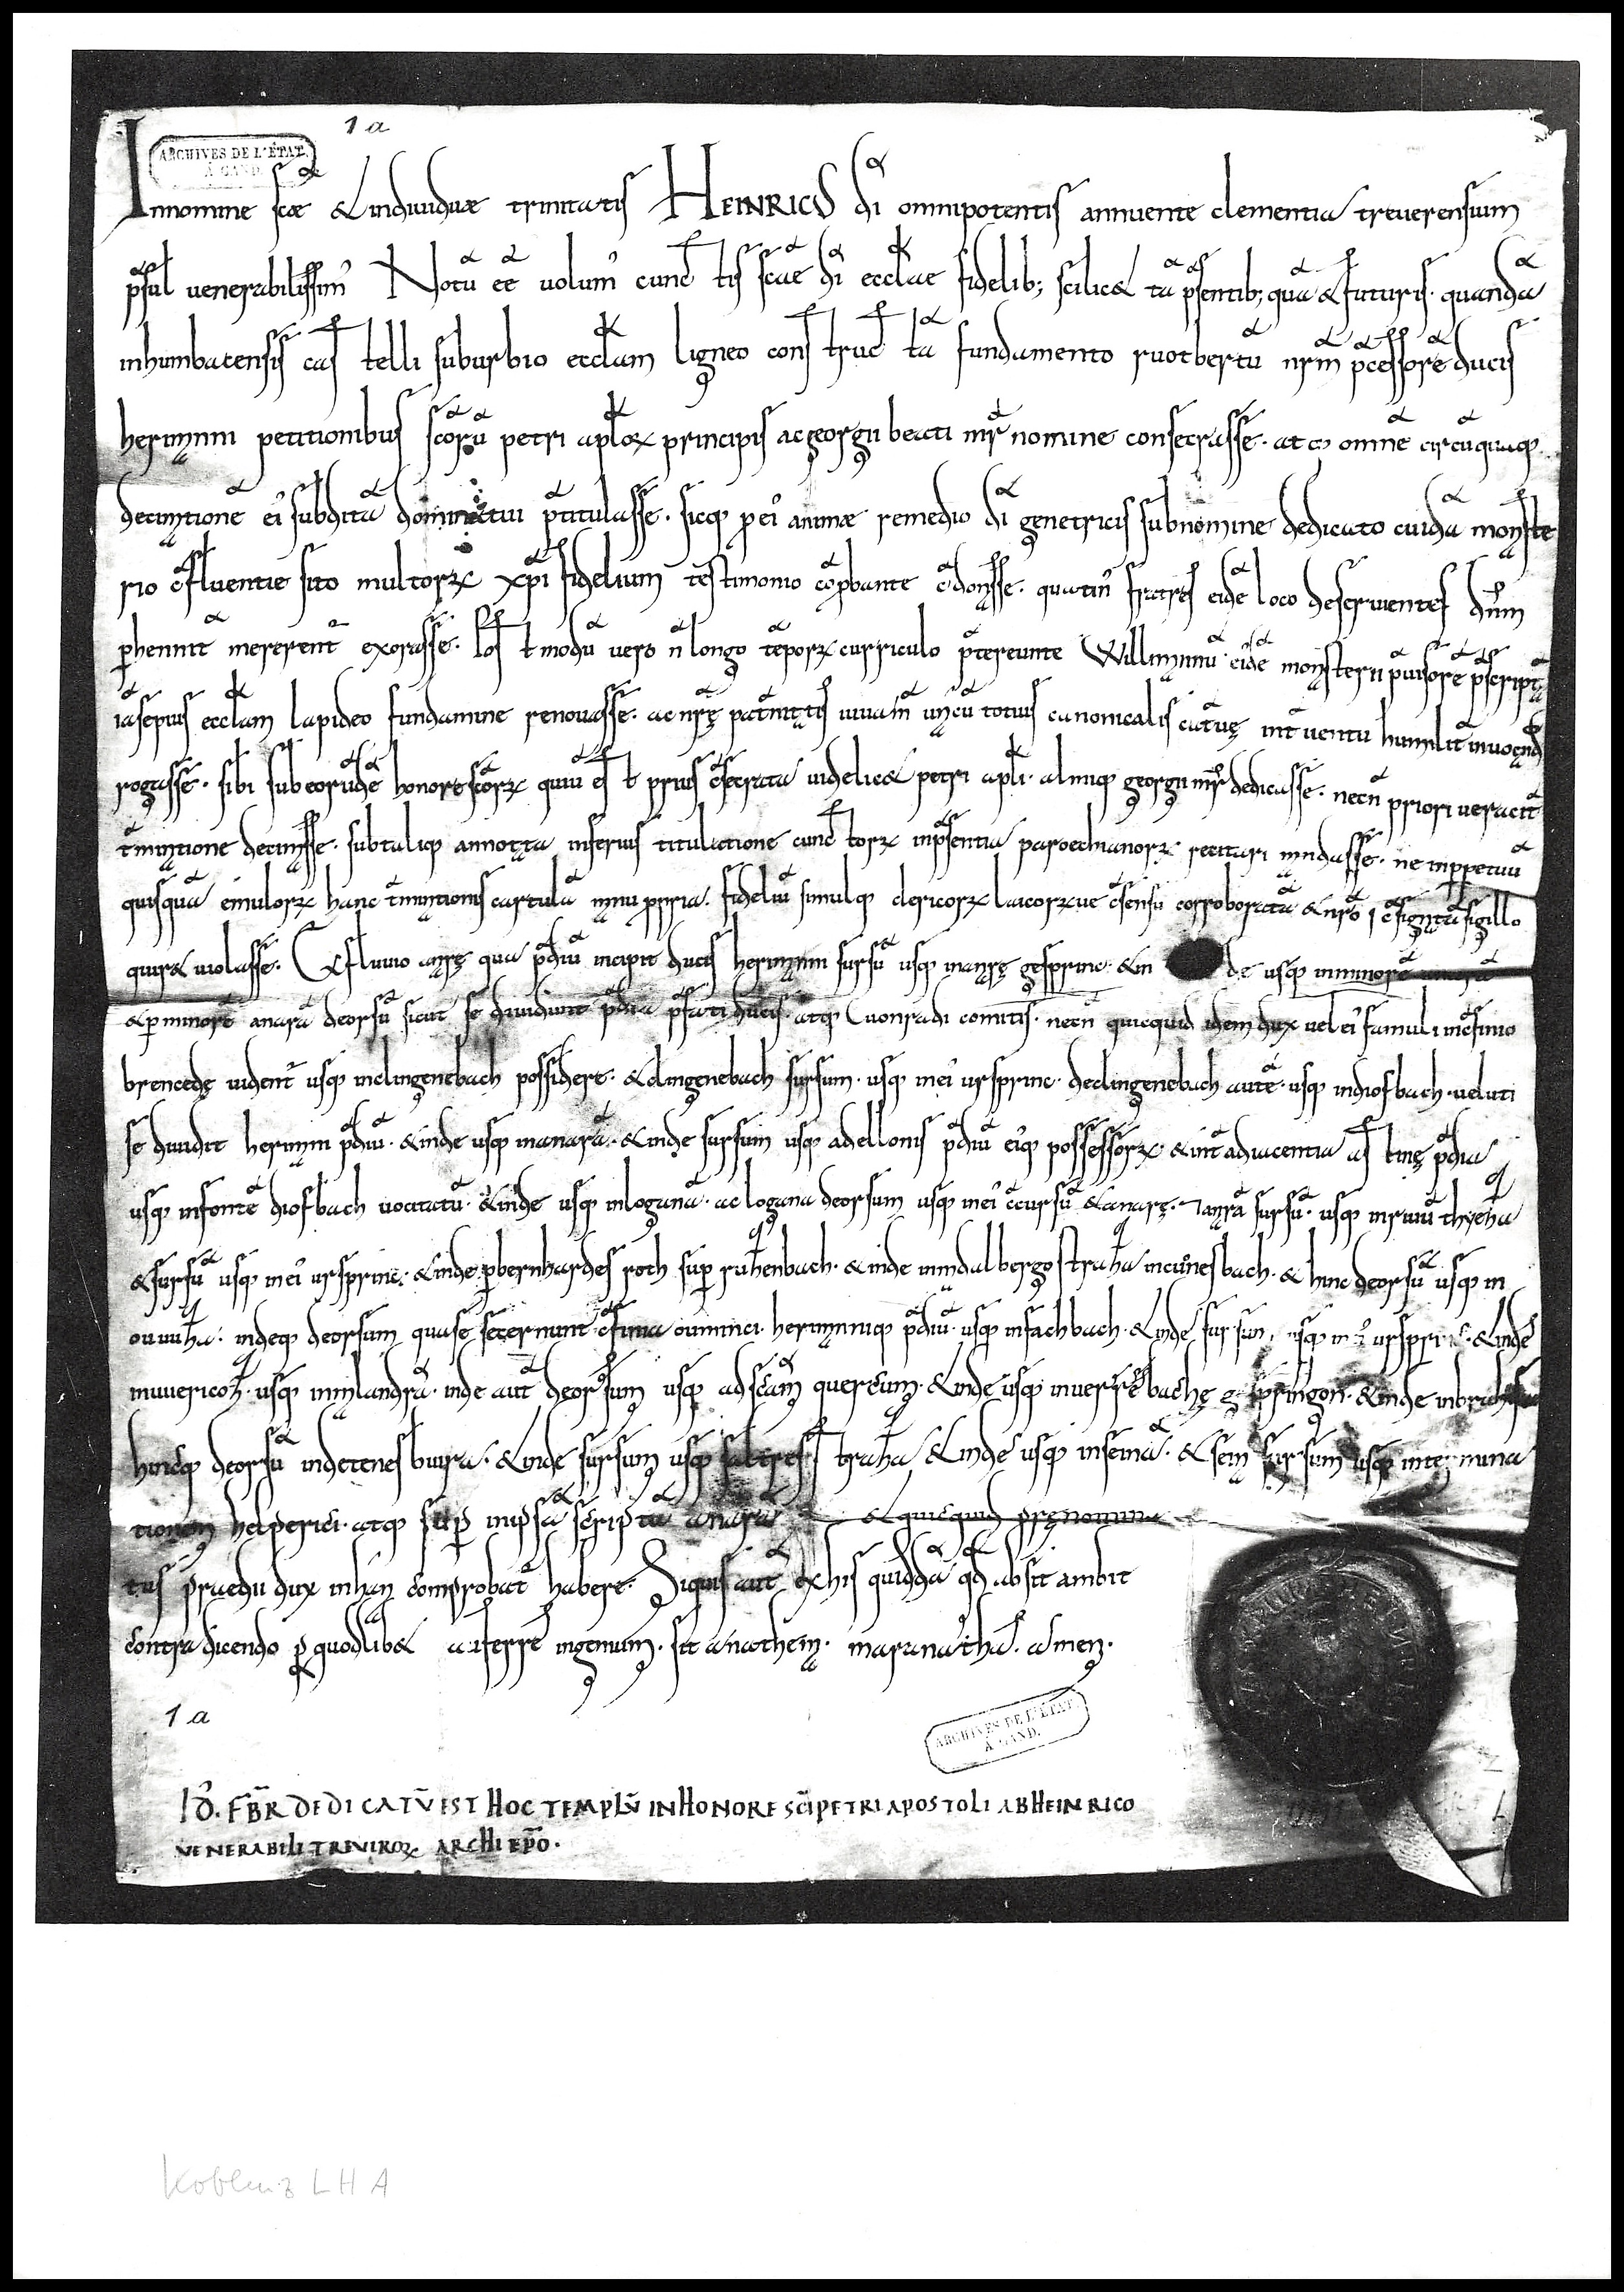 1 a
ARCHIVES DE L'ÉTAT
À GAND.
Innomine scae & indiuiduae trinitatis HEINRICUS di omnipotentis annuente clementia treuerensium
psul uenerabilissim' Notū eē uolum' cunctis scae di ecclae fidelib; scilic& tā psentib; quā & futuris. quandā
inhumbacensis castelli suburbio ecclam ligneo constructā fundamento ruotbertū nrm pcessorē ducis
herimanni petitionibus scorū petri aploꝝ principis ac georgii beati mr nomine consecrasse. atq; omnē circūquaq;
decimationē ei' subditā dominatui ptitulasse. sicq; p ei' animae remedio di genetricis sub nomine dedicato cuidā monaste
rio cfluentie sito multorꝝ xpi fidelium testimonio cōpbante cdonasse. quatin' fratres eidē loco deseruientes dnm
phennit mererent exorasse. Post modū uero n longo tēporꝝ curriculo ptereunte Willimannū eidē monasterii puisorē pscriptā
iasepius ecclam lapideo fundamine renouasse. ac nrę patnitatis unacū totius canonicalis catuę int uentu humilit
rogasse. sibi sub eorūdē honore scorꝝ quiū est prius csecrata uidelic& petri apli. almiq; georgii mr dedicasse. necn priori ueracit
tminatione decimasse. subtaliq; annotata inferius titulatione cunctorꝝ inpsentia paroechianorꝝ recitari mandasse. ne inppetuū
quisquā emulorꝝ hanc tminationis cartulā manu ppria. fideliū simulq; clericorꝝ laicorꝝue csensu corroboratā & nro csignatā sigillo
quiret uiolasse. Ex fluuio anarę qua pdiū incipit ducis herimanni sursū usq; inanarę gesprinc. & in de usq; inminorē anarā
& p minorē anarā deorsū sicut se diuidunt pdia pfati ducis. atq; Cuonradi comitis. necn quicquid idem dux uel ei' famuli incfinio
brencede uident usq; inclingenebach possidere. & clingenebach sursum. usq; inei' ursprinc. declingenebach autē. usq; indiosbach. ueluti
se diuidit herimanni pdiū. & inde usq; inanarā. & inde sursum usq; adellonis pdiū ei'q; possessorꝝ. & int adiacentia pdia
usq; infontē diosbach uocitatū. & inde usq; inloganā. ac logana deorsum usq; inei' ccursū & anarę. Tanarā sursū. usq; inriuū
& sursū usq; inei' ursprinc. & inde p bernhardes roth sup ruhenbach. & inde inmdalbergostraza incuonesbach. & hinc deorsū usq; in
indeq; deorsum quase secernunt cfinia ouuinci. herimanniq; pdiū. usq; infachbach. & inde sursum, usq; in ursprinc. & inde
usq; inmlandrā. inde aut deorsum usq; ad scām quercum. & inde usq; & inde
hincq; deorsū indetenesbuira. & inde sursum usq; & inde usq; inseinā. & sein sursum usq; intermina
tionem helperici. atq; sup inipsā scriptā anarā & quicquid prenomina
tus praedii dux inhan comprobat habere. Siquis aut ex his quiddā qd absit ambit
contradicendo p quodlib& auferre ingenium. sit anathema. maranatha. amen.
1 a
ARCHIVES DE L'ÉTAT
À GAND.
ID. FBR DEDICATV EST HOC TEMPLV IN HONORE SCI PETRI APOSTOLI AB HEINRICO
VENERABILI TREVIROꝝ ARCHI EPO.
Koblenz LHA